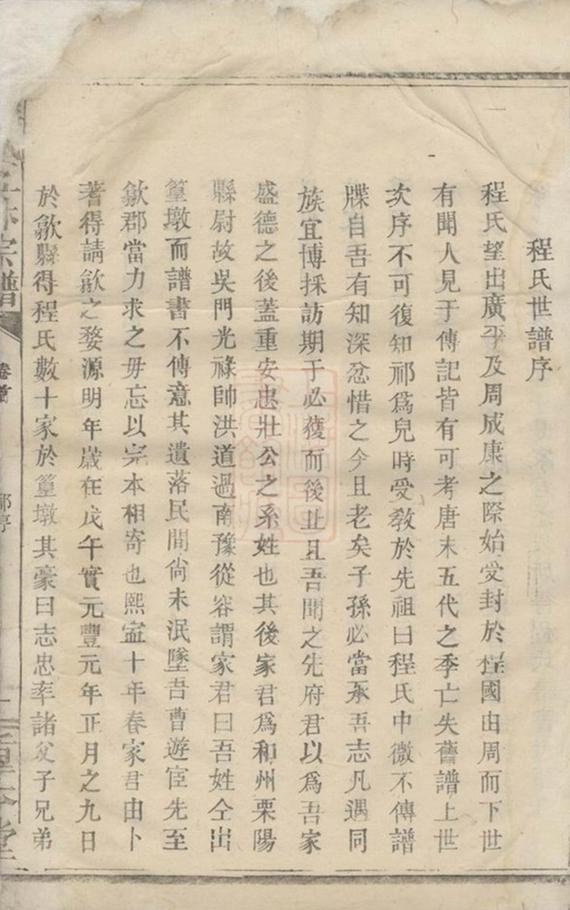 程氏世譜序
程氏望出廣平及周成康之際始受封於程國由周而下世
有聞人見于傳記皆有可考唐末五代之季亡失舊譜上世
次序不可復知祁爲兒時受教於先祖曰程氏中微不傳譜
牒自吾有知深忿惜之今且老矣子孫必當承吾志凡遇同
族宜博採訪期于必獲而後止且吾聞之先府君以爲吾家
盛德之後蓋重安忠壯公之系姓也其後家君爲和州栗陽
縣尉故吳門光祿帥洪道過南豫從容謂家君曰吾姓仝出
篁墩而譜書不傳意其遺落民間尙未泯墜吾曹遊宦先至
歙郡當力求之毋忘以完本相寄也熙寍十年春家君由卜
著得請歙之婺源明年歲在戊午實元豐元年正月之九日
於歙縣得程氏數十家於篁墩其豪曰志忠率諸父子兄弟
宗譜
卷首